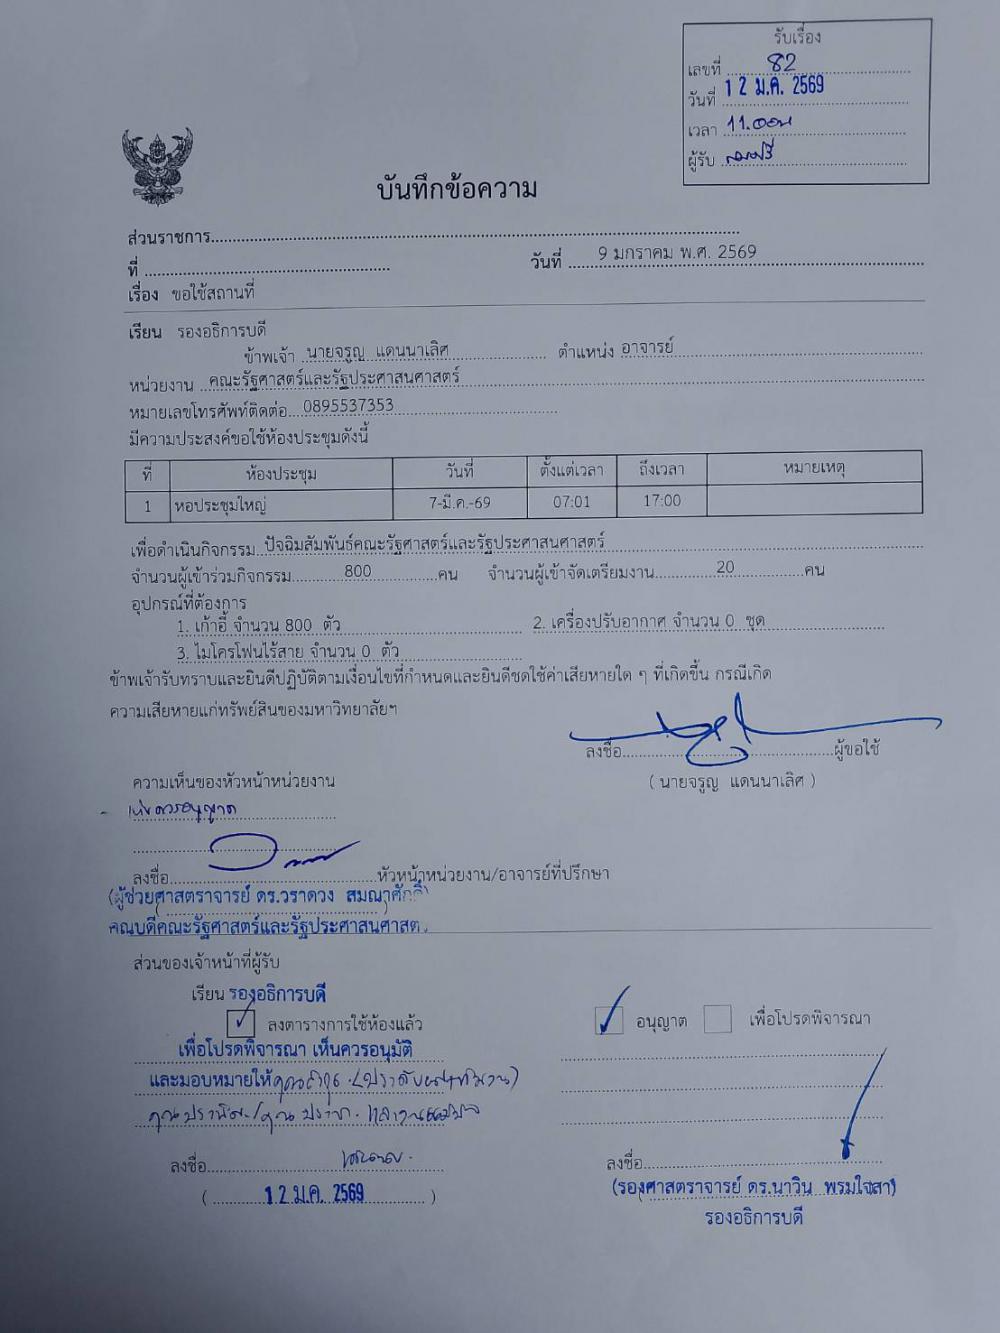 รับเรื่อง
เลขที่ 82
วันที่ 12 ม.ค. 2569
เวลา 11.00น
ผู้รับ
บันทึกข้อความ
ส่วนราชการ
ที่ วันที่ 9 มกราคม พ.ศ. 2569
เรื่อง ขอใช้สถานที่
เรียน รองอธิการบดี
ข้าพเจ้า นายจรูญ แดนนาเลิศ ตำแหน่ง อาจารย์
หน่วยงาน คณะรัฐศาสตร์และรัฐประศาสนศาสตร์
หมายเลขโทรศัพท์ติดต่อ 0895537353
มีความประสงค์ขอใช้ห้องประชุมดังนี้
ที่ ห้องประชุม วันที่ ตั้งแต่เวลา ถึงเวลา หมายเหตุ
1 หอประชุมใหญ่ 7-มี.ค.-69 07:01 17:00
เพื่อดำเนินกิจกรรม ปัจฉิมสัมพันธ์คณะรัฐศาสตร์และรัฐประศาสนศาสตร์
จำนวนผู้เข้าร่วมกิจกรรม 800 คน จำนวนผู้เข้าจัดเตรียมงาน 20 คน
อุปกรณ์ที่ต้องการ
1. เก้าอี้ จำนวน 800 ตัว 2. เครื่องปรับอากาศ จำนวน 0 ชุด
3. ไมโครโฟนไร้สาย จำนวน 0 ตัว
ข้าพเจ้ารับทราบและยินดีปฏิบัติตามเงื่อนไขที่กำหนดและยินดีชดใช้ค่าเสียหายใด ๆ ที่เกิดขึ้น กรณีเกิด
ความเสียหายแก่ทรัพย์สินของมหาวิทยาลัยฯ
ลงชื่อ ผู้ขอใช้
( นายจรูญ แดนนาเลิศ )
ความเห็นของหัวหน้าหน่วยงาน
- เห็นควรอนุญาต
ลงชื่อ หัวหน้าหน่วยงาน/อาจารย์ที่ปรึกษา
(ผู้ช่วยศาสตราจารย์ ดร.วราดวง สมณาศักดิ์)
คณบดีคณะรัฐศาสตร์และรัฐประศาสนศาสตร์
ส่วนของเจ้าหน้าที่ผู้รับ
เรียน รองอธิการบดี
ลงตารางการใช้ห้องแล้ว
เพื่อโปรดพิจารณา เห็นควรอนุมัติ
และมอบหมายให้
ลงชื่อ
( 12 ม.ค. 2569 )
อนุญาต เพื่อโปรดพิจารณา
ลงชื่อ
(รองศาสตราจารย์ ดร.นาวิน พรมใจสา)
รองอธิการบดี